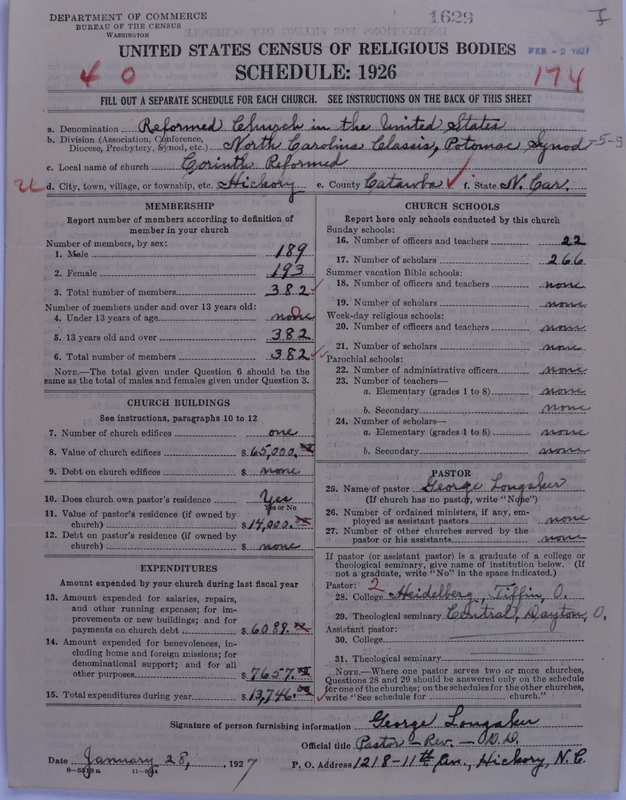 DEPARTMENT OF COMMERCE
BUREAU OF THE CENSUS
WASHINGTON
1629
I
UNITED STATES CENSUS OF RELIGIOUS BODIES
FEB - 2 1927
4 0
SCHEDULE: 1926
174
FILL OUT A SEPARATE SCHEDULE FOR EACH CHURCH. SEE INSTRUCTIONS ON THE BACK OF THIS SHEET
a. Denomination Reformed Church in the United States
b. Division (Association, Conference, Diocese, Presbytery, Synod, etc.) North Carolina Classis, Potomac Synod -5-5
c. Local name of church Corinth Reformed
d. City, town, village, or township, etc. Hickory e. County Catawba f. State N. Car.
MEMBERSHIP
Report number of members according to definition of
member in your church
Number of members, by sex:
1. Male 189
2. Female 193
3. Total number of members 382
Number of members under and over 13 years old:
4. Under 13 years of age none 0
5. 13 years old and over 382
6. Total number of members 382
NOTE.—The total given under Question 6 should be the
same as the total of males and females given under Question 3.
CHURCH BUILDINGS
See instructions, paragraphs 10 to 12
7. Number of church edifices one
8. Value of church edifices $ 65,000.
9. Debt on church edifices $ none
10. Does church own pastor's residence Yes
Yes or No
11. Value of pastor's residence (if owned by
church) $ 14,000.
12. Debt on pastor's residence (if owned by
church) $ none
EXPENDITURES
Amount expended by your church during last fiscal year
13. Amount expended for salaries, repairs,
and other running expenses; for im-
provements or new buildings; and for
payments on church debt $ 6089.
14. Amount expended for benevolences, in-
cluding home and foreign missions; for
denominational support; and for all
other purposes $ 7657.
15. Total expenditures during year $ 13,746.
CHURCH SCHOOLS
Report here only schools conducted by this church
Sunday schools:
16. Number of officers and teachers 22
17. Number of scholars 266
Summer vacation Bible schools:
18. Number of officers and teachers none
19. Number of scholars none
Week-day religious schools:
20. Number of officers and teachers none
21. Number of scholars none
Parochial schools:
22. Number of administrative officers none
23. Number of teachers—
a. Elementary (grades 1 to 8) none
b. Secondary none
24. Number of scholars—
a. Elementary (grades 1 to 8) none
b. Secondary none
PASTOR
25. Name of pastor George Longaker
(If church has no pastor, write "None")
26. Number of ordained ministers, if any, em-
ployed as assistant pastors none
27. Number of other churches served by the
pastor or his assistants none
If pastor (or assistant pastor) is a graduate of a college or
theological seminary, give name of institution below. (If
not a graduate, write "No" in the space indicated.)
Pastor: 2
28. College Heidelberg, Tiffin, O.
29. Theological seminary Central, Dayton, O.
Assistant pastor:
30. College
31. Theological seminary
NOTE.—Where one pastor serves two or more churches,
Questions 28 and 29 should be answered only on the schedule
for one of the churches; on the schedules for the other churches,
write "See schedule for church."
Signature of person furnishing information George Longaker
Official title Pastor - Rev. - D.D.
Date January 28, 1927 P. O. Address 1218-11th Av., Hickory, N.C.